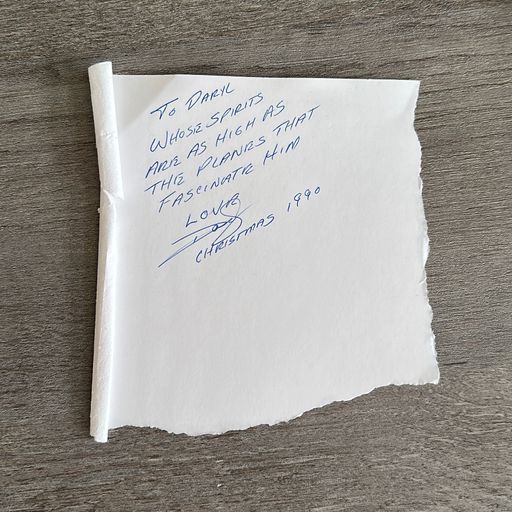 To DARYL
WHOSE SPIRITS
ARE AS HIGH AS
THE PLANES THAT
FASCINATE HIM
LOVE
CHRISTMAS 1990